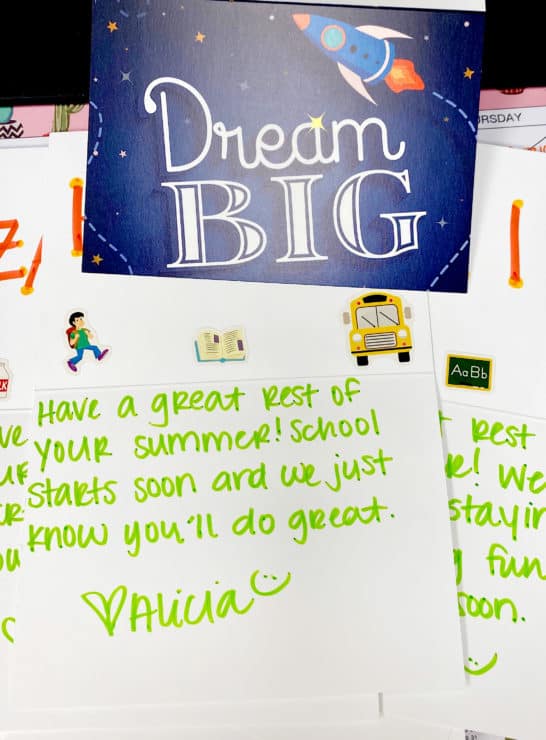 Dream
BIG
RSDAY
AaBb
Have a great rest of
your summer! School
starts soon and we just
know you'll do great.
♡Alicia
rest
We
fun
soon.